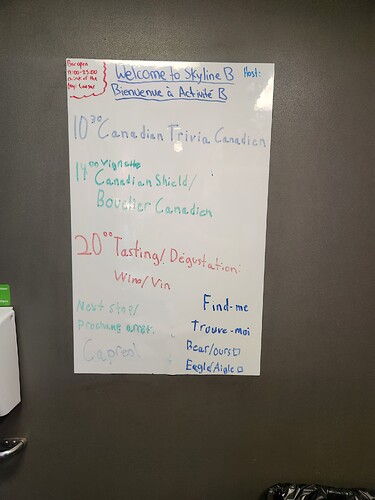 Bar open
11:00-23:00
Day: Caesar
Welcome to Skyline B
Host:
Bienvenue à Activité B
10³⁰ Canadian Trivia Canadien
14⁰⁰ Vignette
Canadian Shield/
Bouclier Canadien
20⁰⁰ Tasting/Dégustation!
Wine/Vin
Next stop/
Prochain arrêt:
Capreol
Find-me
Trouve-moi
Bear/ours □
Eagle/Aigle □